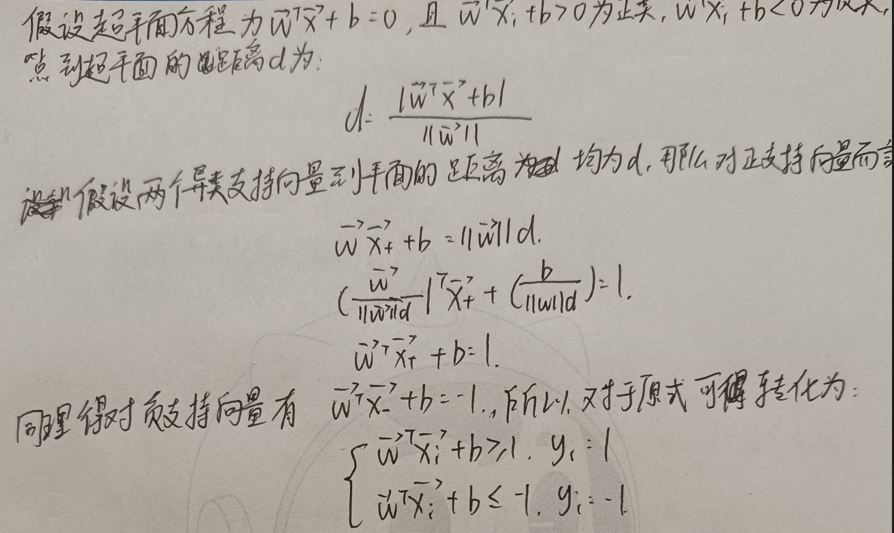 假设超平面方程为 w⃗ᵀx⃗ + b = 0, 且 w⃗ᵀx⃗ᵢ + b > 0 为正类, w⃗ᵀxᵢ + b < 0 为反类,
点到超平面的距离d为:
d = |w⃗ᵀx⃗ + b| / ||w⃗||
假设两个异类支持向量到平面的距离 均为d, 那么对正支持向量而言
w⃗ x⃗₊ + b = ||w⃗||d.
(w⃗ / ||w⃗||d)ᵀ x⃗₊ + (b / ||w||d) = 1.
w⃗ᵀx⃗₊ + b = 1.
同理得对负支持向量有 w⃗ᵀx⃗₋ + b = -1., 所以, 对于原式可得转化为:
{ w⃗ᵀx⃗ᵢ + b ≥ 1. yᵢ = 1
w⃗ᵀx⃗ᵢ + b ≤ -1. yᵢ = -1